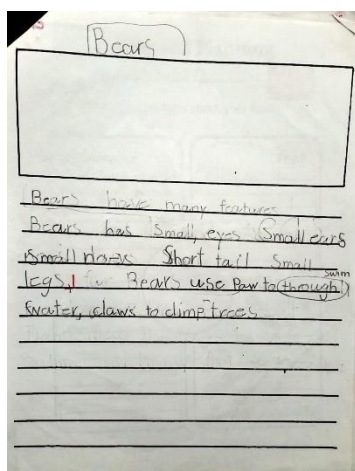 Bears
Bears have many features
Bears has small, eyes Small ears
small noses Short tail Small
legs, Bears use Paw to swim through
water, claws to climp trees